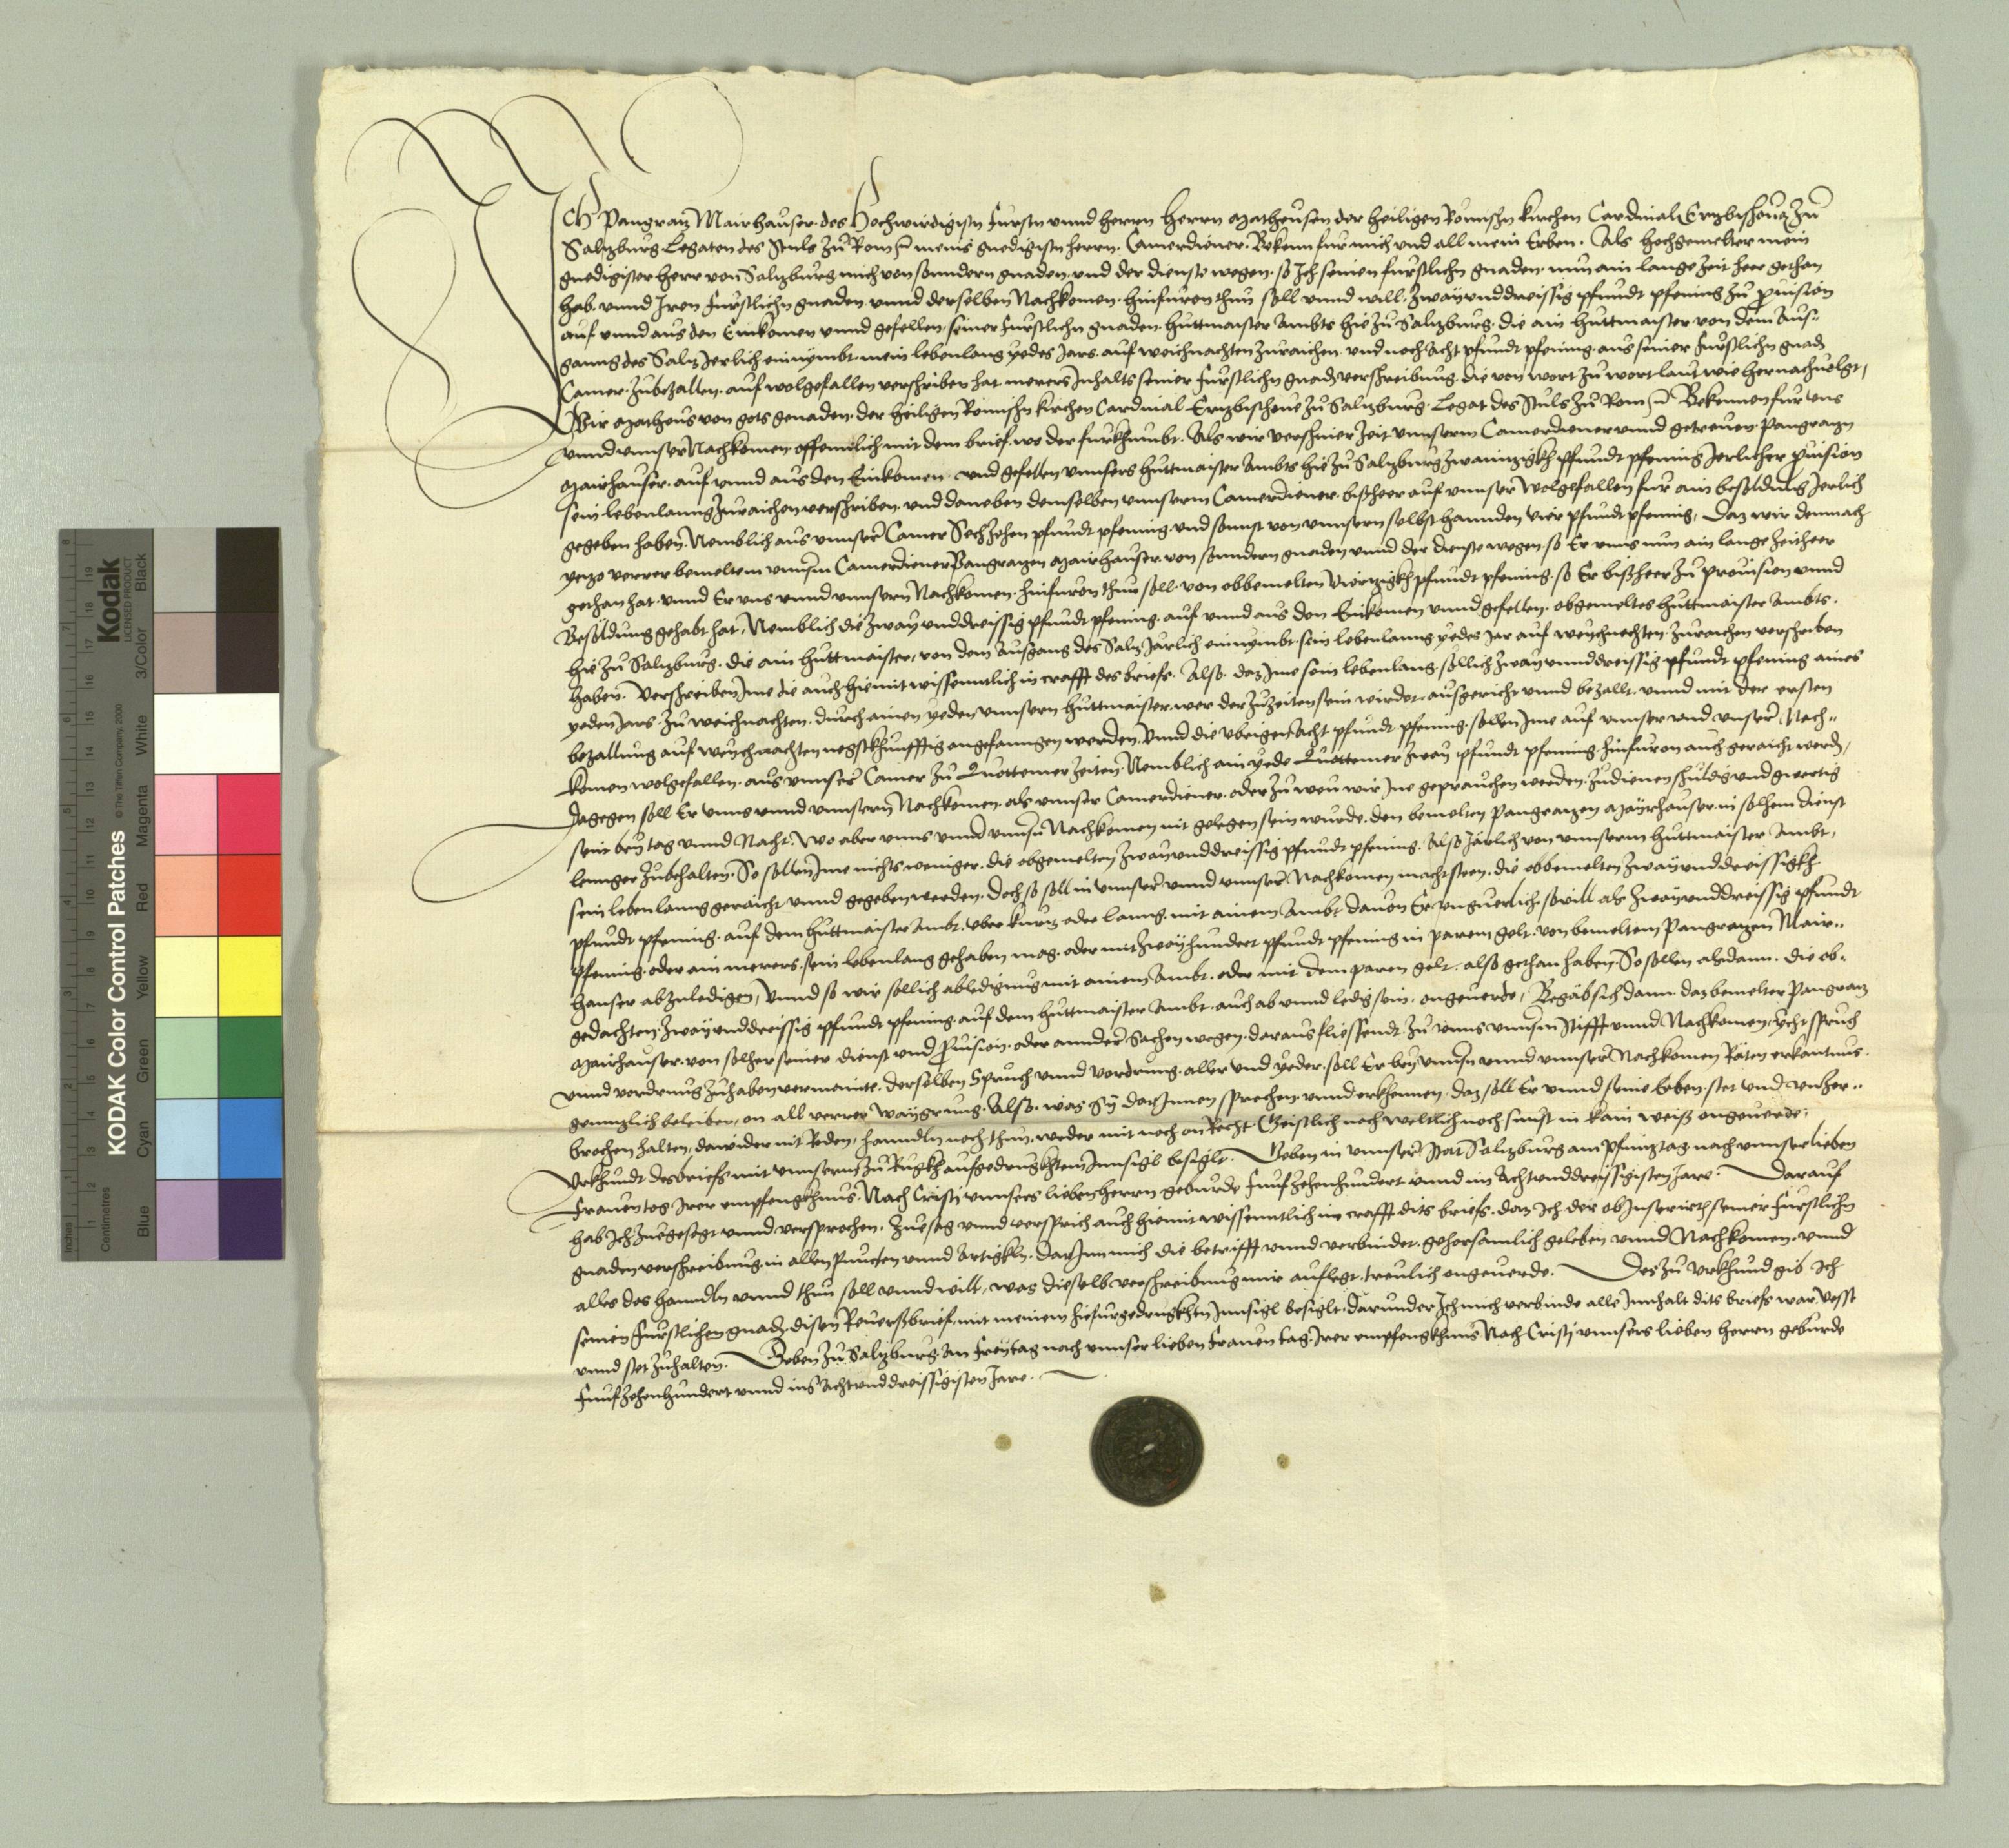 Ich Pangratz Mairhauser des Hochwirdigistn Furstn vnnd herrn Herrn Matheusen der heiligen Römischn kirchen Cardinal Ertzbischoue zu
Saltzburg Legaten des Stuls zu Rom etc meins gnedigistn herrn Camerdiener. Bekenn fur mich vnd all mein Erben. Als hochgemelter mein
gnedigister herr von Saltzburg mich von sonndern gnaden vnd der dienste wegen, so Ich seinen furstlichn gnaden nun ain lange zeit heer gethan
hab, vnnd Iren Furstlichn gnaden vnnd derselben Nachkomen hinfuron thun soll vnnd will, Zwayunddreissig pfundt pfening zu prouision
auf vnnd aus den Einkomen vnnd gefellen seiner Furstlichn gnaden huttmaister Ambts hie zu Saltzburg, die ain huttmaister von dem Aus-
ganng des Saltz Jerlich einnymbt, mein lebenlang yedes Jars auf weichnachten zuraichen, vnd noch Acht pfundt pfening aus seiner Furstlichn gnadn
Camer zubezallen auf wolgefallen verschriben hat, merers Inhalts seiner Furstlichn gnadn verschreibung, die von wort zu wort laut wie hernachuolgt,
Wir Matheus von gots genaden der heiligen Römischn kirchen Cardinal Ertzbischoue zu Saltzburg Legat des Stuls zu Rom etc Bekennen fur vns
vnnd vnnser Nachkomen offennlich mit dem brief, wo der furkhumbt. Als wir verschiner Zeit vnnserm Camerdiener vnnd getreuen Pangratzn
Mairhauser, auf vnnd aus den Einkomen vnd gefellen vnnsers huttmaister Ambts hie zu Saltzburg zwaintzigkh pfundt pfening Jerlicher prouision
sein lebenlanng zuraichen verschriben, vnd daneben demselben vnnserm Camerdiener bissheer auf vnnser wolgefallen fur ain besoldung Jerlich
gegeben haben, Nemblich aus vnnser Camer Sechzehen pfundt pfening, vnd sonnst von vnnsern selbst hannden vier pfundt pfennig, Daz wir demnach
yetzo vorrer bemeltem vnnserm Camerdiener Pangratzen Mairhauser von sonndern gnaden vnnd der dienste wegen, so Er vnns nun ain lange Zeit heer
gethan hat, vnnd Er vns vnnd vnnsern Nachkomen hinfuron thun soll, von obbemelten viertzigkh pfundt pfening, so Er bissheer zu prouision vnnd
Besoldung gehabt hat, Nemblich die zwayunddreissig pfundt pfening auf vnnd aus den Einkomen vnnd gefellen obgemeltes huttmaister Ambts
hie zu Saltzburg, die ain huttmaister, von dem Ausgang des Saltz Järlich einnymbt, sein lebenlanng yedes Jar auf weychnechten zuraichen verschriben
haben. Verschreiben Ime die auch hiemit wissenntlich in crafft des briefs. Also, daz Ime sein lebenlang sollich zwayunnddreissig pfundt pfening aines
yeden Jars zu weichnachten, durch ainen yeden vnnsern huttmaister, wer der zuzeiten sein wirdet, ausgericht vnnd bezallt, vnnd mit der ersten
bezallung auf weychnachten negstkhunfftig angefanngen werden. Vnnd die vbrigen Acht pfundt pfening sollen Ime auf vnnser vnd vnnser Nach-
komen wolgefallen, aus vnnser Camer zu Quottemer zeiten, Nemblich ain yede Quottemer zway pfundt pfening hinfuron auch geraicht werdn,
Dagegen soll Er vnns vnnd vnnsern Nachkomen, als vnnser Camerdiener, oder zu weu wir Ine geprauchen werden, zudienen schuldig vnd gwertig
sein bey tag vnnd Nacht. Wo aber vnns vnnd vnnsern Nachkomen nit gelegen sein wurde, den bemelten Pangratzen Mayrhauser in solhem dienst
lennger zubehalten. So sollen Ime nichts weniger die obgemelten zwayunddreissig pfundt pfening, Also Järlich von vnnserm huttmaister Ambt,
sein lebenlanng geraicht vnnd gegeben werden, doch so soll in vnnser vnnd vnnser Nachkomen macht steen, die obbemelten zwayunddreissigkh
pfundt pfening auf dem huttmaister Ambt, vber kurtz oder lanng, mit ainem Ambt dauon Er vngeuerlich, souill als zwayunddreissig pfundt
pfening, oder ain merers, sein lebenlang gehaben mag, oder mit zwayhundert pfundt pfening in parem gelt, von bemeltem Pangratzen Mair-
hauser abzuledigen, Vnnd so wir sollich abledigung mit ainem Ambt, oder mit dem paren gelt, also gethan haben, So sollen alsdann, die ob-
gedachten zwayunddreissig pfundt pfening, auf dem huttmaister Ambt, auch ab vnnd ledig sein, ongeuerde, Begäb sich dann, daz bemelter Pangratz
Mairhauser, von solher seiner dienst vnd prouision, oder annder Sachen wegen, daraus fliessendt, zu vnns vnnserm Stifft vnnd Nachkomen, ycht spruch
vnnd vordrung zuhaben vermainte, derselben Spruch vnnd vordrung, aller vnd yeder, soll Er bey vnnser vnnd vnnser Nachkomen Räten erkantnus
genntzlich beleiben, on all verrer waygrung. Also, was Sy darInnen sprechen vnnd erkhennen, daz soll Er vnnd seine Erben stet vnd vnzer-
brochen halten, dawider nit Reden, hanndln noch thun, weder mit noch on Recht Geistlich noch weltlich noch sunst in kain weiß ongeuerde,
Vrkhundt des briefs mit vnnserm zu Rugkh aufgedrugkhtem Innsigl besiglt. Geben in vnnser Stat Saltzburg am Pfintztag nach vnnser lieben
Frauen tag Irer empfengkhnus. Nach Cristi vnnsers lieben herrn geburde Funfzehenhundert vnnd im Achtunddreissigisten Jare. Darauf
hab Ich zuegesagt vnnd versprochen, zuesag vnnd versprich auch hiemit wissenntlich in crafft dits briefs, daz Ich der obInserirtn seiner Furstlichn
gnaden verschreibung, in allen Puncten vnnd Artigkln, DarInn mich die betrifft vnnd verbindet, gehorsamlich geleben vnnd Nachkomen, vnnd
alles des hanndln vnnd thun soll vnnd will, was dieselb verschreibung mir auflegt, treulich ongeuerde. Des zu Vrkhund gib Ich
seinen Furstlichen gnadn, disen Reuerssbrief, mit meinem hiefurgedrugkhtn Innsigl besiglt, Darunder Ich mich verbinde alle Innhalt dits briefs war, vesst
vnnd stet zuhalten. Geben zu Saltzburg, Am Freytag nach vnnser lieben Frauen tag, Irer empfengkhnus Nach Cristi vnnsers lieben herrn geburde
Funfzehenhundert vnnd im Achtunddreissigisten Jare.
KODAK Color Control Patches
© The Tiffen Company, 2000
Kodak
LICENSED PRODUCT
Blue Cyan Green Yellow Red Magenta White 3/Color Black
Inches 1 2 3 4 5 6 7 8
Centimetres 1 2 3 4 5 6 7 8 9 10 11 12 13 14 15 16 17 18 19